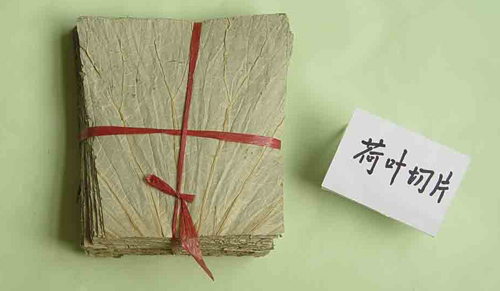 荷叶切片